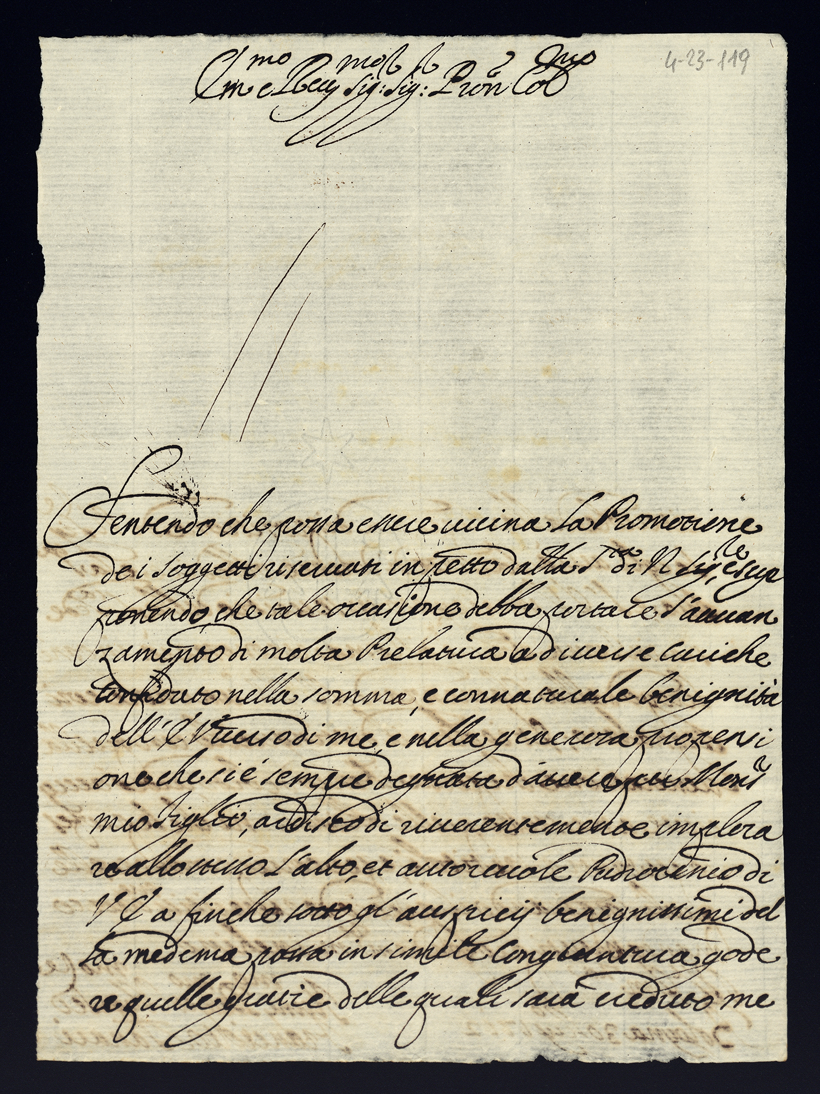 4-23-119
Em.mo e R.mo Sig: Sig: Pron Col.mo
Sentendo che possa essere vicina la Promotione
dei soggetti riservati in petto dalla S.tà di N. Sig.re e sup
ponendo, che tale occasione debba portare l'avvan
zamento di molta Prelatura a diverse Cariche
confidato nella somma, e connaturale benignità
dell'E V verso di me, e nella generosa propensi
one che si è sempre degnata d'avere Mons.r
mio figlio, ardisco di riverentemente implora
re allo stesso l'alto, et autorevole Padrocinio di
V E a finche sotto gl'auspicij benignissimi del
la medema possa in simile congiuntura gode
re quelle gratie delle quali sarà creduto me